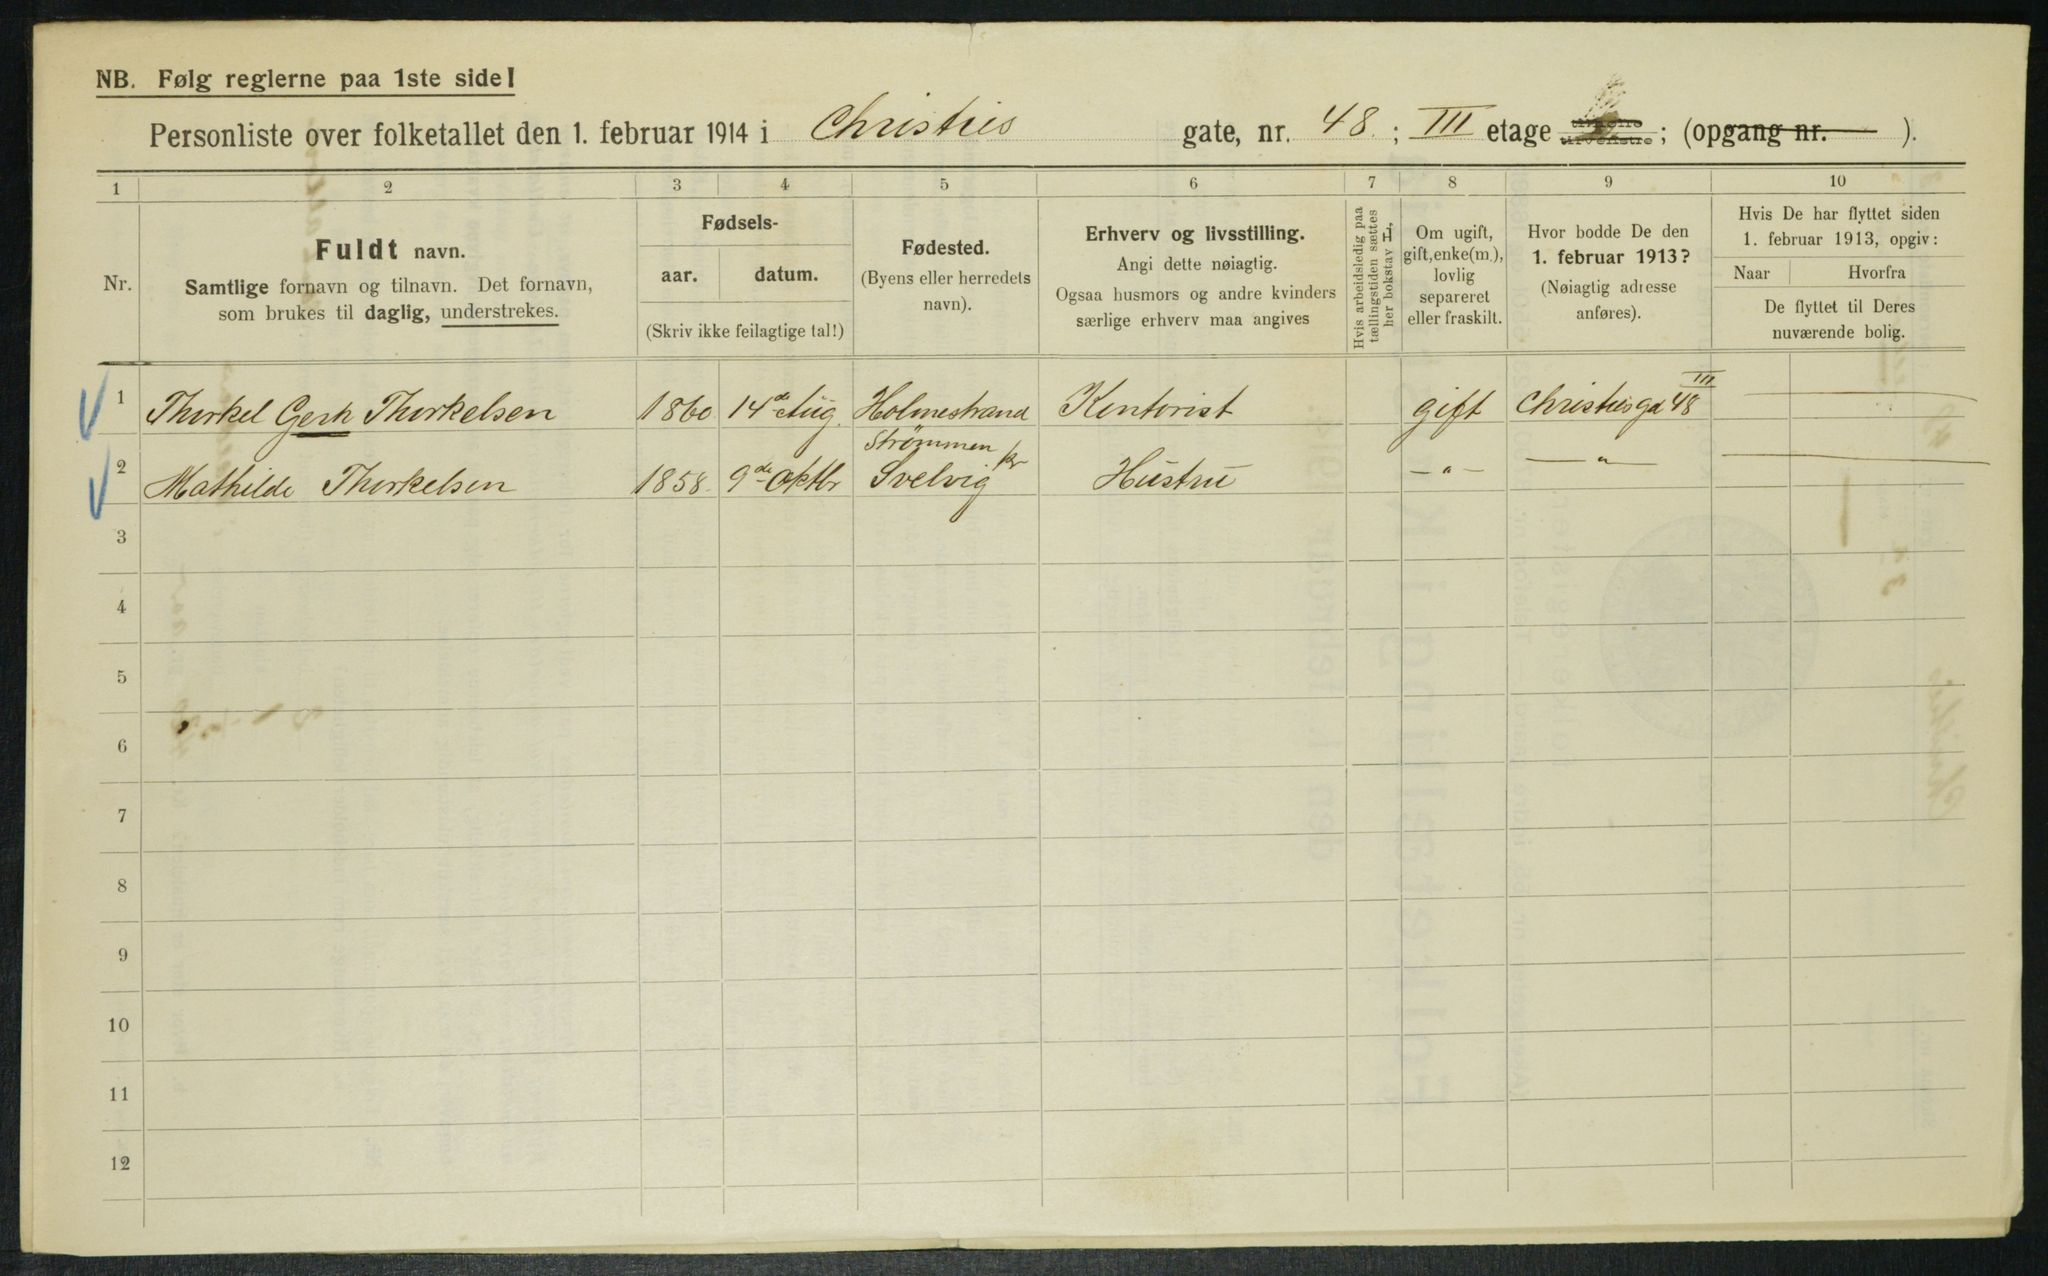 NB. Følg reglerne paa 1ste side!
Personliste over folketallet den 1. februar 1914 i Christies gate, nr. 48 ; III etage ; (opgang nr. ).
1 2 3 4 5 6 7 8 9 10
Nr.
Fuldt navn.
Samtlige fornavn og tilnavn. Det fornavn,
som brukes til daglig, understrekes.
Fødsels-
aar. datum.
(Skriv ikke feilagtige tal!)
Fødested.
(Byens eller herredets
navn).
Erhverv og livsstilling.
Angi dette nøiagtig.
Ogsaa husmors og andre kvinders
særlige erhverv maa angives
Hvis arbeidsledig paa
tællingstiden sættes
her bokstav L.
Om ugift,
gift, enke(m.),
lovlig
separeret
eller fraskilt.
Hvor bodde De den
1. februar 1913?
(Nøiagtig adresse
anføres).
Hvis De har flyttet siden
1. februar 1913, opgiv:
Naar Hvorfra
De flyttet til Deres
nuværende bolig.
1 Thorkel Gerh Thorkelsen 1860 14de Aug. Holmestrand Kontorist gift Christiesgd 48 III
2 Mathilde Thorkelsen 1858. 9de Oktbr Strømmen pr Svelvig Hustru — " — — " —
3
4
5
6
7
8
9
10
11
12